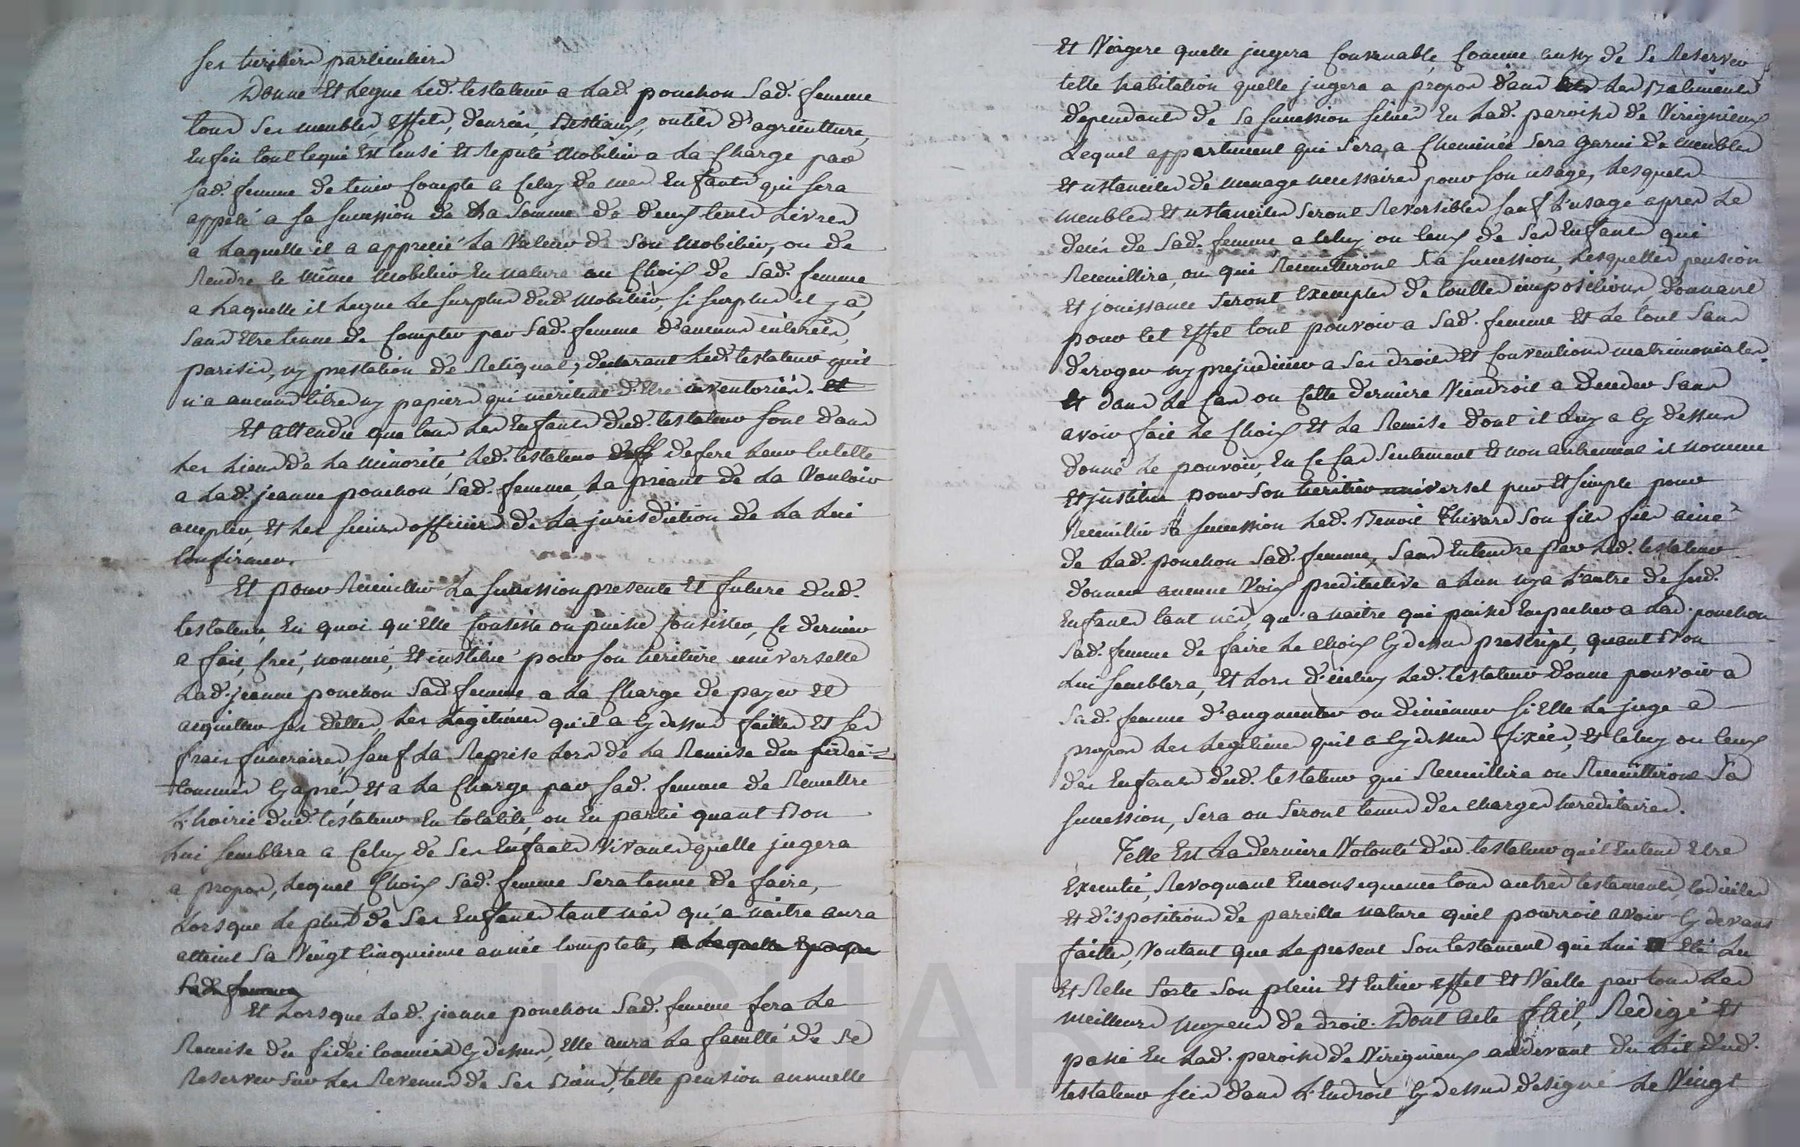 ses heritiers particuliers
Donne et Legue Led. testateur a Lad. ponchon Sad. femme
tous Ses meubles, effets, denrées, Bestiaux, outils d'agriculture,
Enfin tout lequi Est Censé Et Reputé Mobilier a La Charge par
Sad. femme de tenir Compte a Celuy de mes Enfants qui sera
appellé a sa succession de La Somme de deux Cents Livres
a Laquelle il a apprecié La Valeur de Son Mobilier, ou de
Rendre le même Mobilier En nature au Choix de Sad. femme
a Laquelle il Legue Le Surplus dud. Mobilier, si surplus il y a,
Sans Etre tenue de Compter par Sad. femme d'aucuns interets,
parisis, ny prestation de Reliquat, declarant Led. testateur qu'il
n'a aucuns titres ny papiers qui meritent d'Etre inventoriés. et
Et attendu que tous Les Enfants dud. testateur sont dans
Les Liens de La Minorité Led. testateur deff defere Leur tutelle
a Lad. jeanne ponchon Sad. femme, La priant de La Vouloir
accepter Et Les sieurs officiers de La jurisdiction de La Lui
Confirmer.
Et pour Recueillir La Succession presente Et future dud.
testateur, En quoi qu'Elle Consiste ou puisse Consister, Ce dernier
a fait, Créé, nommé, Et institué pour son heritiere universelle
Lad. jeanne ponchon Sad. femme a La Charge de payer Et
acquitter ses dettes, Les Legitimes qu'il a Cy dessus faittes Et ses
frais funeraires, sauf La Reprise Lors de La Remise du fideï-
Commis Cy après, Et a La Charge par Sad. femme de Remettre
L'hoirie dud. testateur En totalité, ou En partie quant Bon
Lui semblera a Celuy de Ses Enfants Vivants quelle jugera
a propos, Lequel Choix Sad. femme Sera tenue de faire,
Lorsque Le plus de Ses Enfants tant nés qu'a naitre aura
atteint Sa Vingt Cinquieme année Complete, a Laquelle Epoque
Sad. femme
Et Lorsque Lad. jeanne ponchon Sad. femme fera La
Remise du fidei Commis Cy dessus, Elle aura La faculté de Se
Reserver Sur Les Revenus de Ses Biens, telle pension annuelle
Et Viagere quelle jugera Convenable, Comme aussy de Se Reserver
telle habitation quelle jugera a propos dans Les Batiments
dépendants de Sa Succession Situés En Lad. paroisse de Virignieux
Lequel appartement qui Sera a Cheminée Sera Garni de meubles
Et ustanciles de menage necessaires pour Son usage, Lesquels
meubles Et ustanciles Seront Reversibles Sauf L'usage apres Le
decés de Sad. femme a Celuy ou Ceux de Ses Enfants qui
Recueillira, ou qui Recueilliront Sa Succession, Lesquelles pension
Et jouissance Seront Exemptes de touttes impositions, donnant
pour Cet Effet tout pouvoir a Sad. femme Et Le tout Sans
deroger ny prejudicier a Ses droits Et Conventions matrimoniales.
Et dans Le Cas ou Cette derniere Viendroit a deceder Sans
avoir fait Le Choix Et La Remise dont il Luy a Cy dessus
donné Le pouvoir, En Ce Cas Seulement Et non autrement il nomme
Et institue pour Son heritier universel pur Et simple pour
Recueillir Sa Succession Led. Benoit Thivard Son fils fils ainé
de Lad. ponchon Sad. femme, Sans Entendre par Led. testateur
donner aucune Voix preditective a L'un ny a L'autre de Sesd.
Enfants tant nés, qu'a naitre qui puisse Empecher a Lad. ponchon
Sad. femme de faire Le Choix Cy dessus prescript, quant Bon
Lui Semblera, Et Lors d'iceluy Led. testateur donne pouvoir a
Sad. femme d'augmenter ou diminuer Si Elle Le juge a
propos Les Legitimes qu'il a Cy dessus fixées, Et Celuy ou Ceux
des Enfants dud. testateur qui Recueillira ou Recueilliront Sa
Succession, Sera ou Seront tenus des Charges hereditaires.
Telle Est La derniere Volonté dud. testateur qu'il Entend Etre
Executée, Revoquant En consequence tous autres testaments, Codiciles
Et dispositions de pareille nature qu'il pourroit avoir Cy devant
faittes, Voulant que Le present Son testament qui Lui a Eté Lu
Et Relu Sorte Son plein Et Entier effet Et Vaille par tous Les
meilleurs moyens de droit. Dont acte Fait, Redigé Et
passé En Lad. paroisse de Virignieux audevant du Lit dud.
testateur Scis dans L'Endroit Cy dessus designé Le Vingt